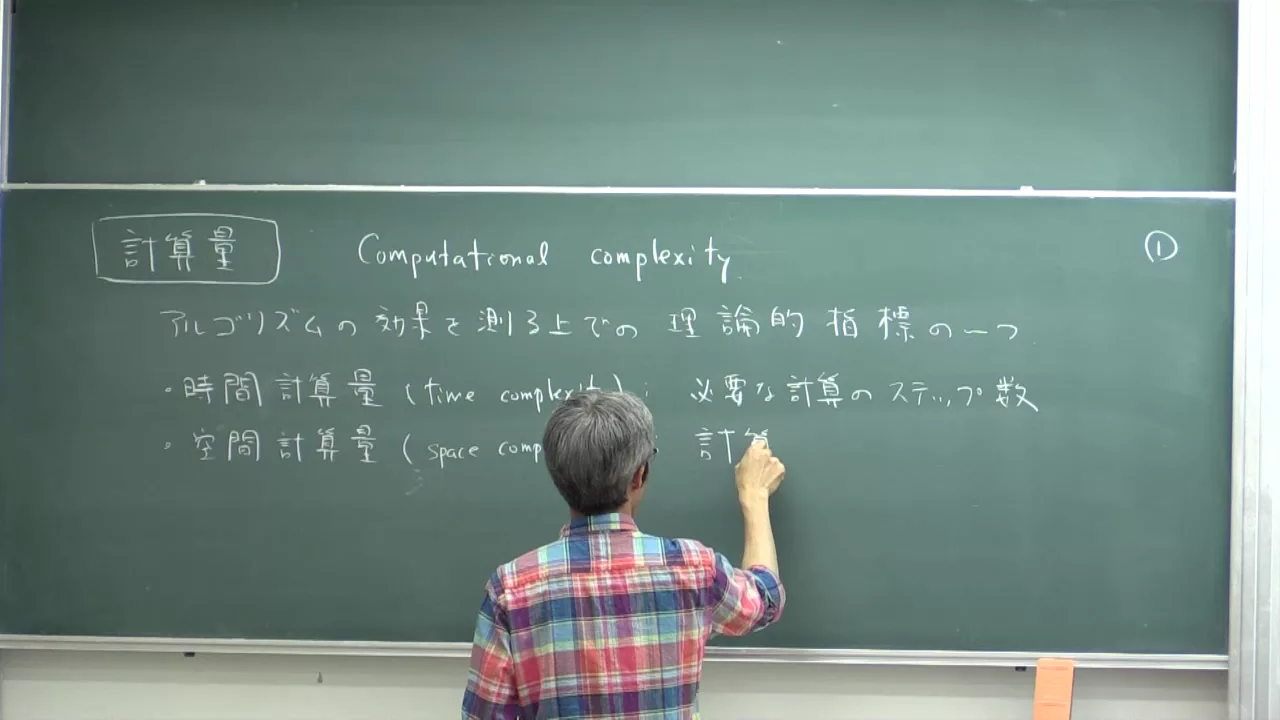 計算量 Computational complexity ①
アルゴリズムの効果を測る上での理論的指標の一つ
・時間計算量 (time complexity) : 必要な計算のステップ数
・空間計算量 (space comp : 計算